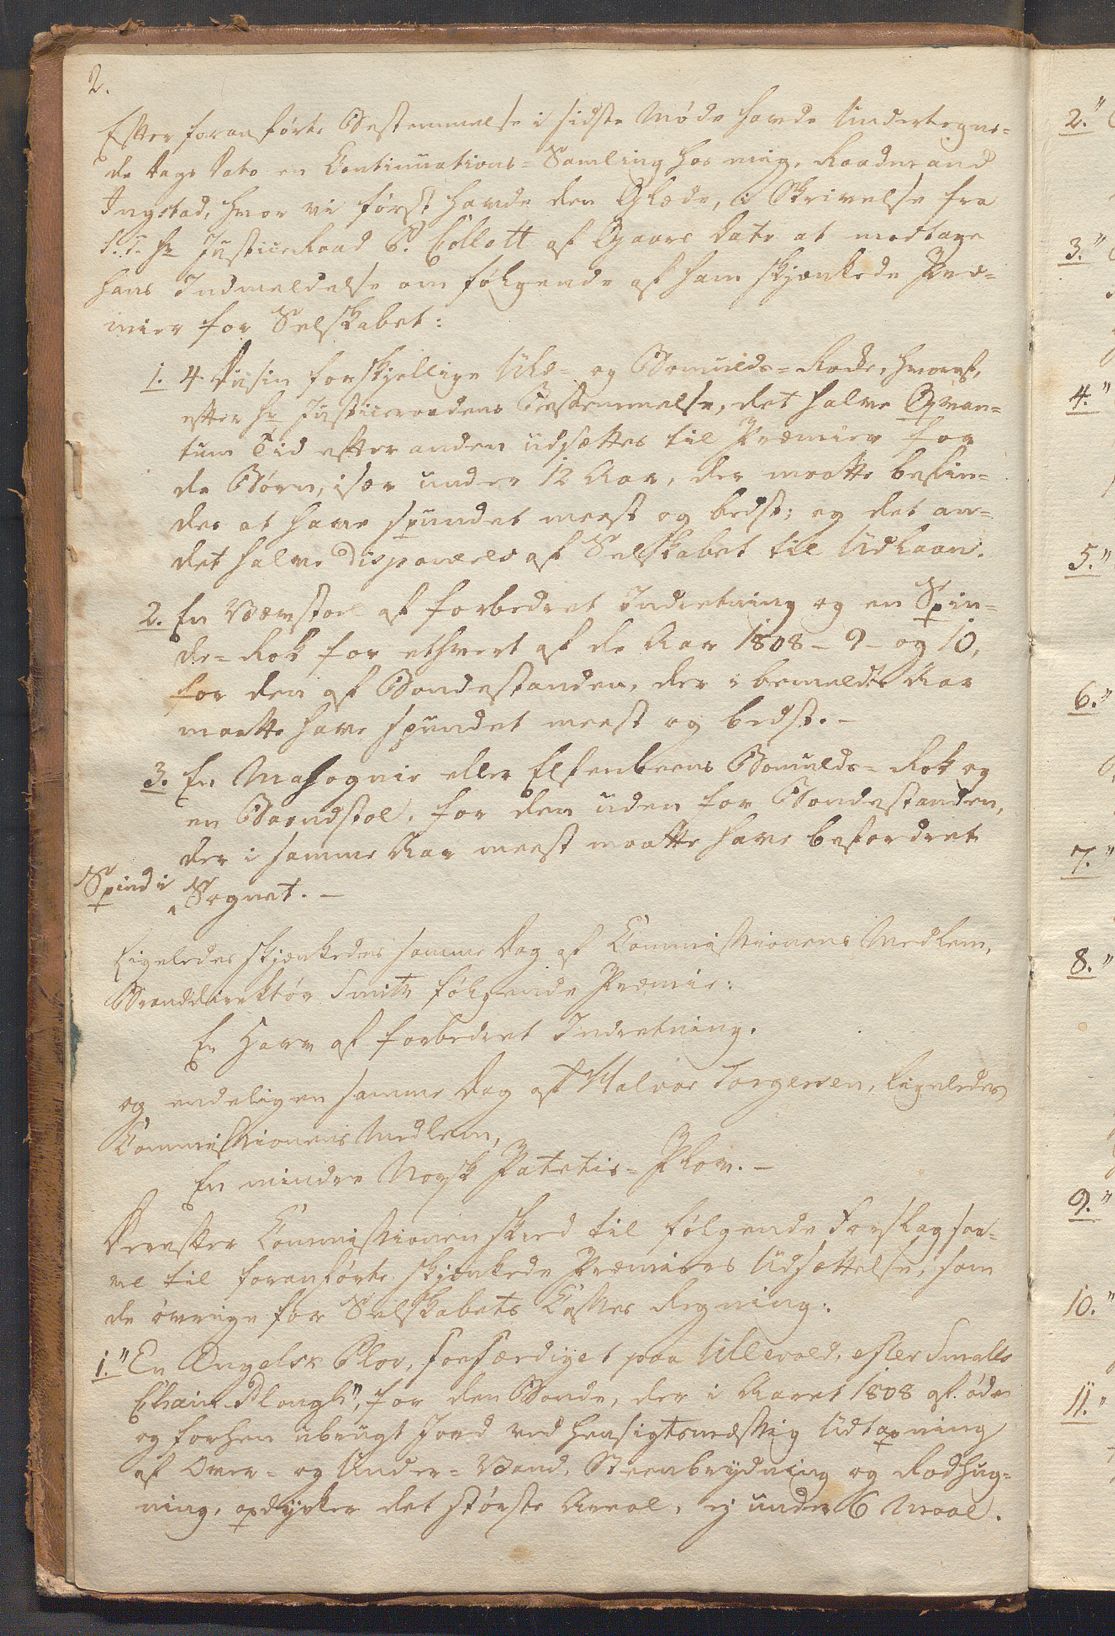 2.
Efter foranførte Bestemmelse i sidste Møde havde Undertegne-
de Dags Dato en Continuations-Samling hos mig, Raadmand
Ingstad, hvor vi først havde den Glæde, i Skrivelse fra
S. T. Hr Justice Raad P. Collett af Gaars Dato at modtage
hans Indmeldelse om følgende af ham skjænkede Præ-
mier for Selskabet:
1. 4 Dusin forskjellige Uld- og Bomulds-Rokke, hvoraf,
efter Hr Justiceraadens Bestemmelse, det halve Qvan-
tum Tid efter anden udsættes til Præmier for
de Børn, især under 12 Aar, der maatte befin-
des at have spundet meest og bedst; og det an-
det halve disponeres af Selskabet til Udlaan.
2. En Væverstoel af forbedret Indretning og en Spin-
de-Rok for ethvert af de Aar 1808 - 9 - og 10,
for den af Bondestanden, der i bemeldte Aar
maatte have spundet meest og bedst. -
3. En Mahognie eller Elfenbeens Bomulds-Rok og
en Baandstol, for den uden for Bondestanden,
der i samme Aar meest maatte have befordret
Spind i Sognet. -
Ligeledes skjænkedes samme Dag af Commissionens Medlem,
Branddirektør Smith følgende Præmie:
En Harv af forbedret Indretning.
og endeligen samme Dag af Halvor Torgersen, ligeledes
Commissionens Medlem,
En mindre Norsk Patetis-Plov. -
Derefter Commissionen skred til følgende Forslag saa-
vel til foranførte skjænkede Præmiers Udsættelse, som
de øvrige for Selskabets Casses Regning:
1." En Engelsk Plov, forfærdiget paa Ullevold, efter Smalls
Chain Plough", for den Bonde, der i Aaret 1808 af øde
og forhen ubrugt Jord ved hensigtsmæssig Udtapning
af Over- og Under-Vand, Steenbrydning og Rodhug-
ning, opdyrker det største Areal, ej under 6 Maal.
2."
3."
4."
5."
6."
7."
8."
9."
10."
11."